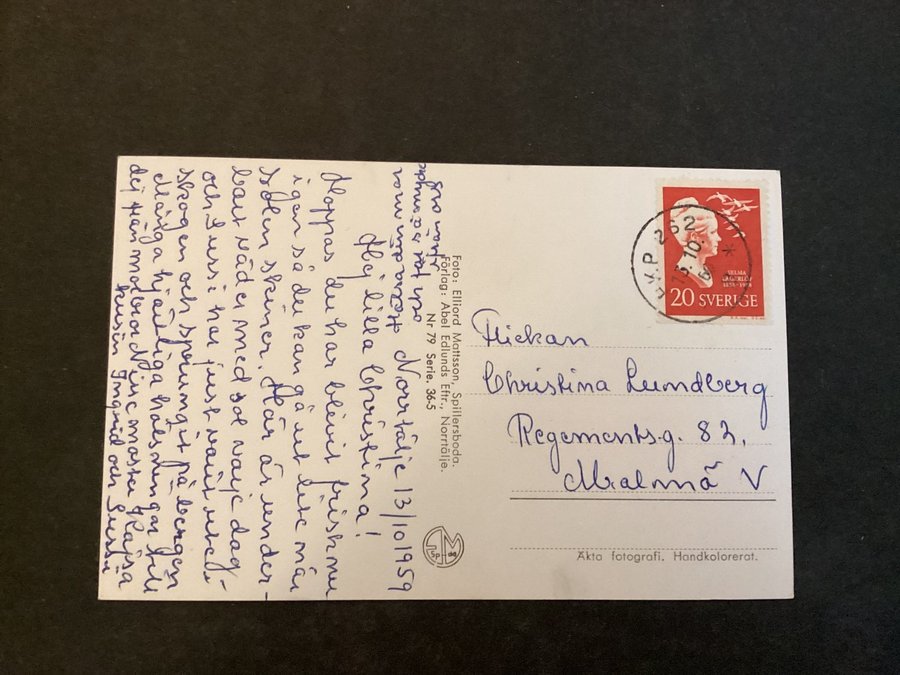 Norrtälje 13/10 1959
Hej lilla Christina!
Hoppas du har blivit frisk nu
igen så du kan gå ut lite när
solen skiner. Här är under-
bart väder med sol varje dag
och Sussi har just varit ute i
skogen och sprungit på bergen
Många hjärtliga hälsningar till
dej från morbror Nisse moster Kajsa
kusin Ingrid och Sussi
Foto: Elliord Mattsson, Spillersboda.
Förlag: Abel Edlunds Eftr., Norrtälje.
Nr 79 Serie. 36-5
SELMA
LAGERLÖF
1858-1958
20 SVERIGE
PKP 262
Flickan
Christina Lundberg
Regementsg. 83,
Malmö V
Äkta fotografi. Handkolorerat.